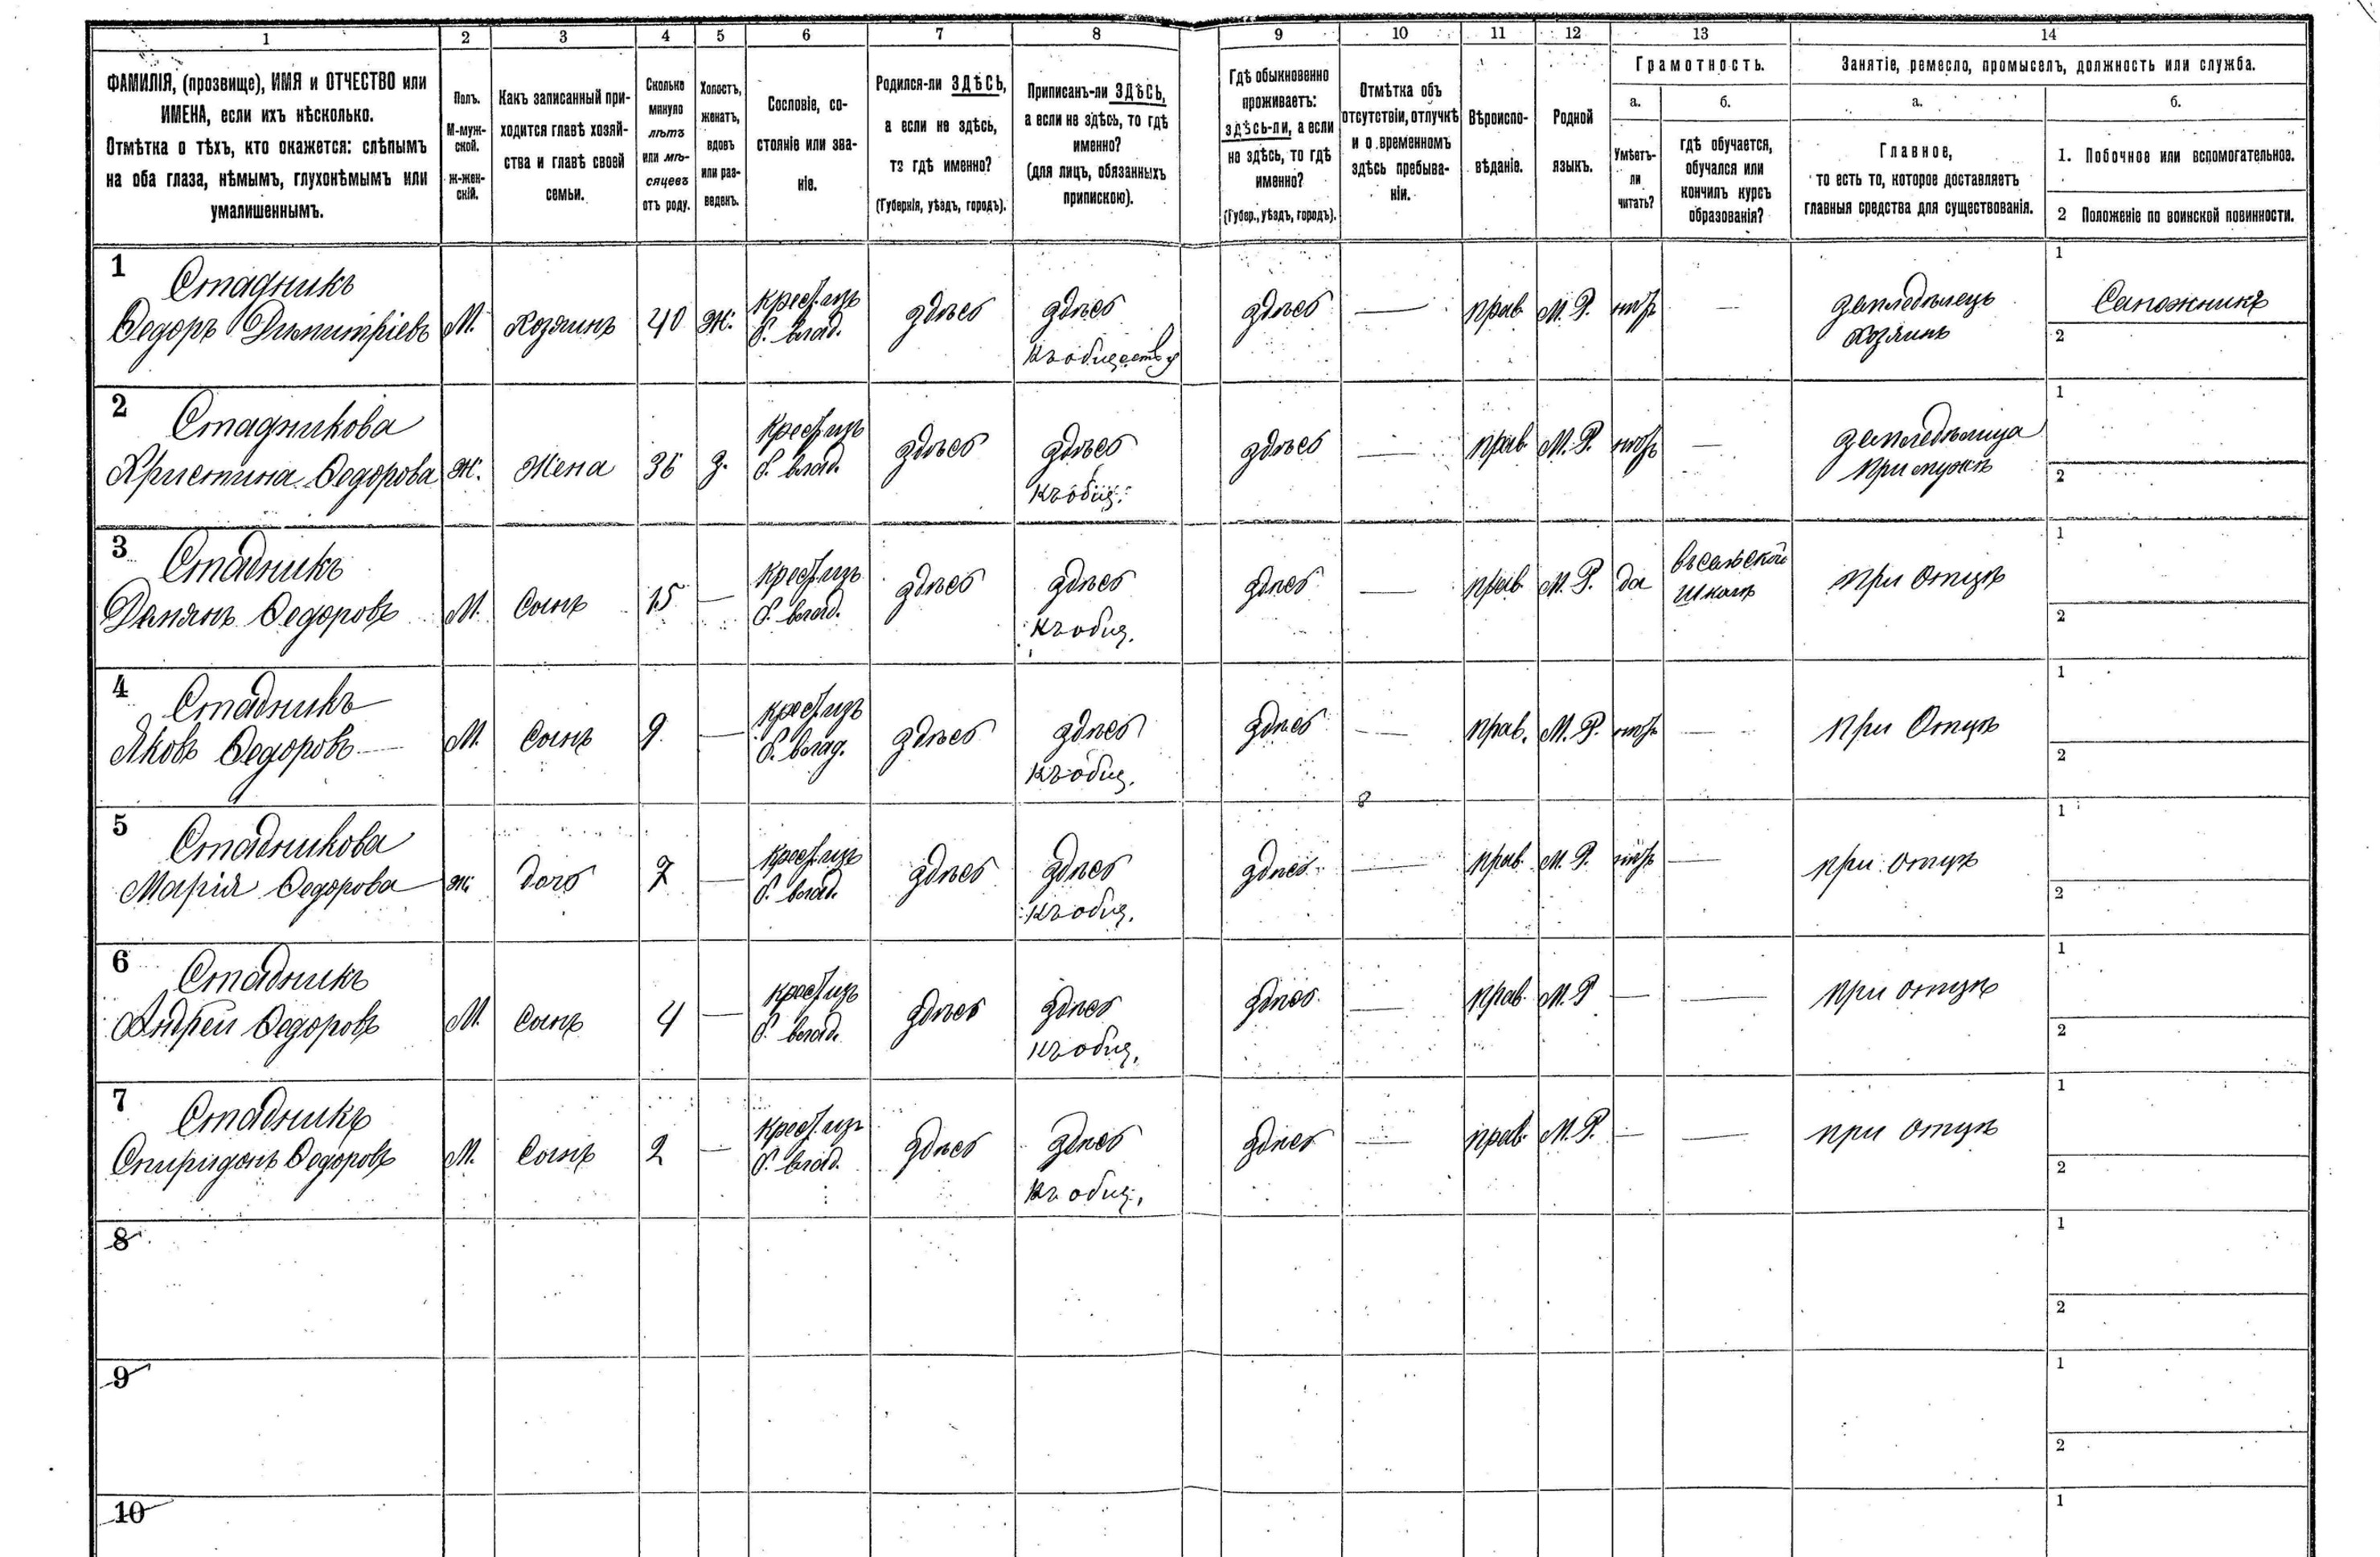 1 2 3 4 5 6 7 8 9 10 11 12 13 14
ФАМИЛІЯ, (прозвище), ИМЯ и ОТЧЕСТВО или
ИМЕНА, если ихъ нѣсколько.
Отмѣтка о тѣхъ, кто окажется: слѣпымъ
на оба глаза, нѣмымъ, глухонѣмымъ или
умалишеннымъ.
Полъ.
М-муж-
ской.
ж-жен-
скій.
Какъ записанный при-
ходится главѣ хозяй-
ства и главѣ своей
семьи.
Сколько
минуло
лѣтъ
или мѣ-
сяцевъ
отъ роду.
Холостъ,
женатъ,
вдовъ
или раз-
веденъ.
Сословіе, со-
стояніе или зва-
ніе.
Родился-ли ЗДѢСЬ,
а если не здѣсь,
то гдѣ именно?
(Губернія, уѣздъ, городъ).
Приписанъ-ли ЗДѢСЬ,
а если не здѣсь, то гдѣ
именно?
(для лицъ, обязанныхъ
припискою).
Гдѣ обыкновенно
проживаетъ:
здѣсь-ли, а если
не здѣсь, то гдѣ
именно?
(Губер., уѣздъ, городъ).
Отмѣтка объ
отсутствіи, отлучкѣ
и о временномъ
здѣсь пребыва-
ніи.
Вѣроиспо-
вѣданіе.
Родной
языкъ.
Грамотность.
а.
Умѣетъ-
ли
читать?
б.
гдѣ обучается,
обучался или
кончилъ курсъ
образованія?
Занятіе, ремесло, промыселъ, должность или служба.
а.
Главное,
то есть то, которое доставляетъ
главныя средства для существованія.
б.
1. Побочное или вспомогательное.
2 Положеніе по воинской повинности.
1 Стадникъ
Ѳедоръ Димитріевъ М. Хозяинъ 40 Ж. Крест. изъ
б. влад. здѣсь здѣсь
къ обществу здѣсь — прав. М. Р. нѣтъ — земледѣлецъ
хозяинъ 1 Сапожникъ
2
2 Стадникова
Христина Ѳедорова Ж. Жена 36 З. Крест. изъ
б. влад. здѣсь здѣсь
къ общ. здѣсь — прав. М. Р. нѣтъ — земледѣлица
при мужѣ 1
2
3 Стадникъ
Ѳедоровъ М. Сынъ 15 — Крест. изъ
б. влад. здѣсь здѣсь
къ общ. здѣсь — прав. М. Р. да въ сельской
школѣ при отцѣ 1
2
4 Стадникъ
Яковъ Ѳедоровъ М. Сынъ 9 — Крест. изъ
б. влад. здѣсь здѣсь
къ общ. здѣсь — прав. М. Р. нѣтъ — при Отцѣ 1
2
5 Стадникова
Марія Ѳедорова ж. дочь 7 — Крест. изъ
б. влад. здѣсь здѣсь
къ общ. здѣсь — прав. М. Р. нѣтъ — при отцѣ 1
2
6 Стадникъ
Андрей Ѳедоровъ М. Сынъ 4 — Крест. изъ
б. влад. здѣсь здѣсь
къ общ. здѣсь — прав. М. Р — — при отцѣ 1
2
7 Стадникъ
Спиридонъ Ѳедоровъ М. Сынъ 2 — Крест. изъ
б. влад. здѣсь здѣсь
къ общ. здѣсь — прав. М. Р. — — при отцѣ 1
2
8 1
2
9 1
2
10 1